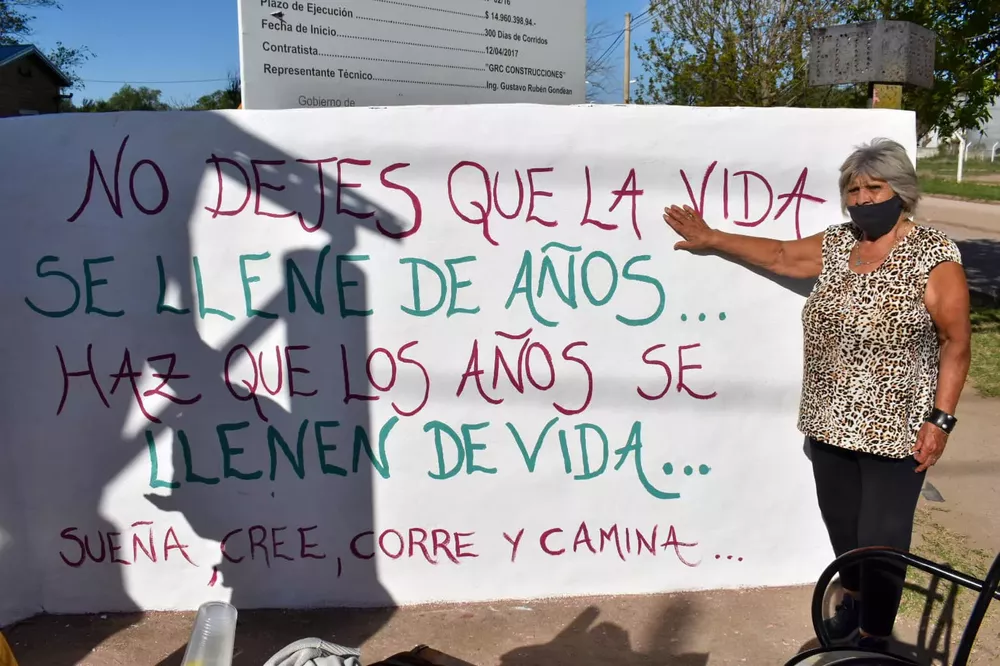 Plazo de Ejecución $ 14.960.398.94.-
Fecha de Inicio 300 Días de Corridos
Contratista 12/04/2017
Representante Técnico "GRC CONSTRUCCIONES"
Ing. Gustavo Rubén Gondean
Gobierno de
NO DEJES QUE LA VIDA
SE LLENE DE AÑOS...
HAZ QUE LOS AÑOS SE
LLENEN DE VIDA...
SUEÑA, CREE, CORRE Y CAMINA...